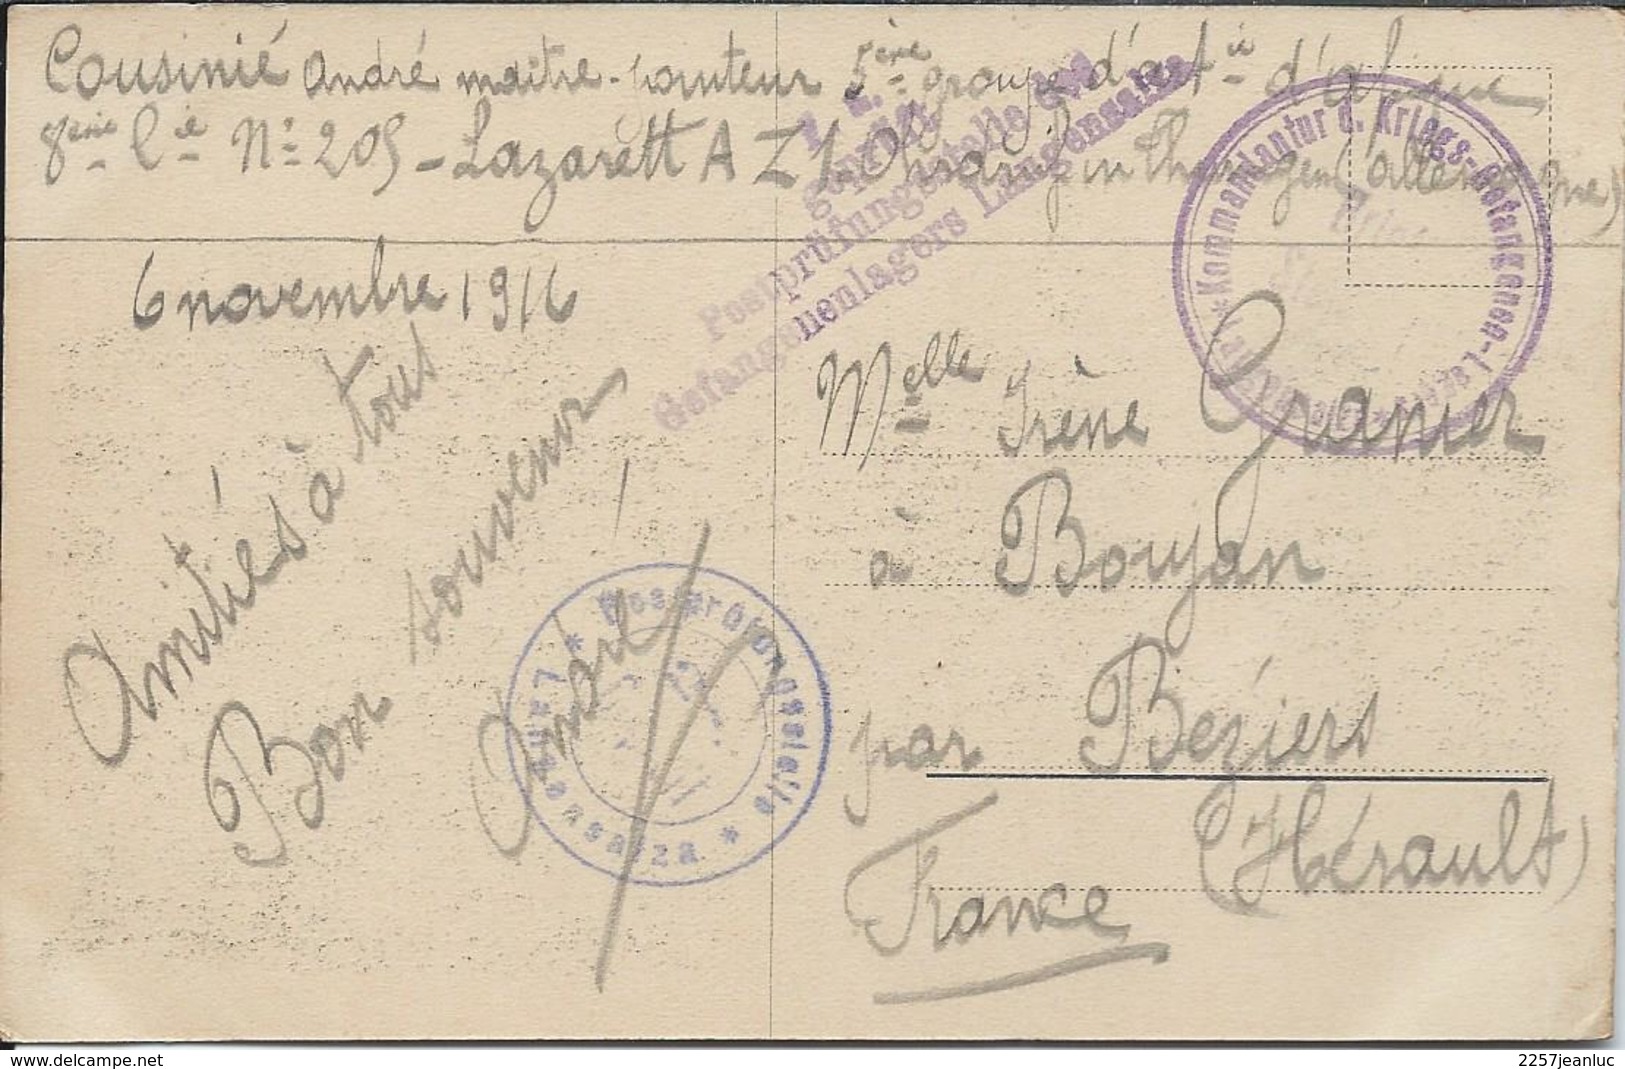 Cousinié André maître-pointeur 5ème groupe d'artie d'afrique
8ème Cie No 205 - Lazarett A Z 1. Ohrdruf in Thuringen (allemagne)
F. a.
geprüft
Postprüfungsstelle des
Gefangenenlagers Langensalza
* Kommandantur d. Kriegs-Gefangenen-Lazar
6 novembre 1916
Amitiés à tous
Bon souvenir
André
* Postprüfungsstelle * Langensalza
Melle Irène Granier
à Boujan
par Béziers
(Hérault)
France
delcampe.net
2257jeanluc